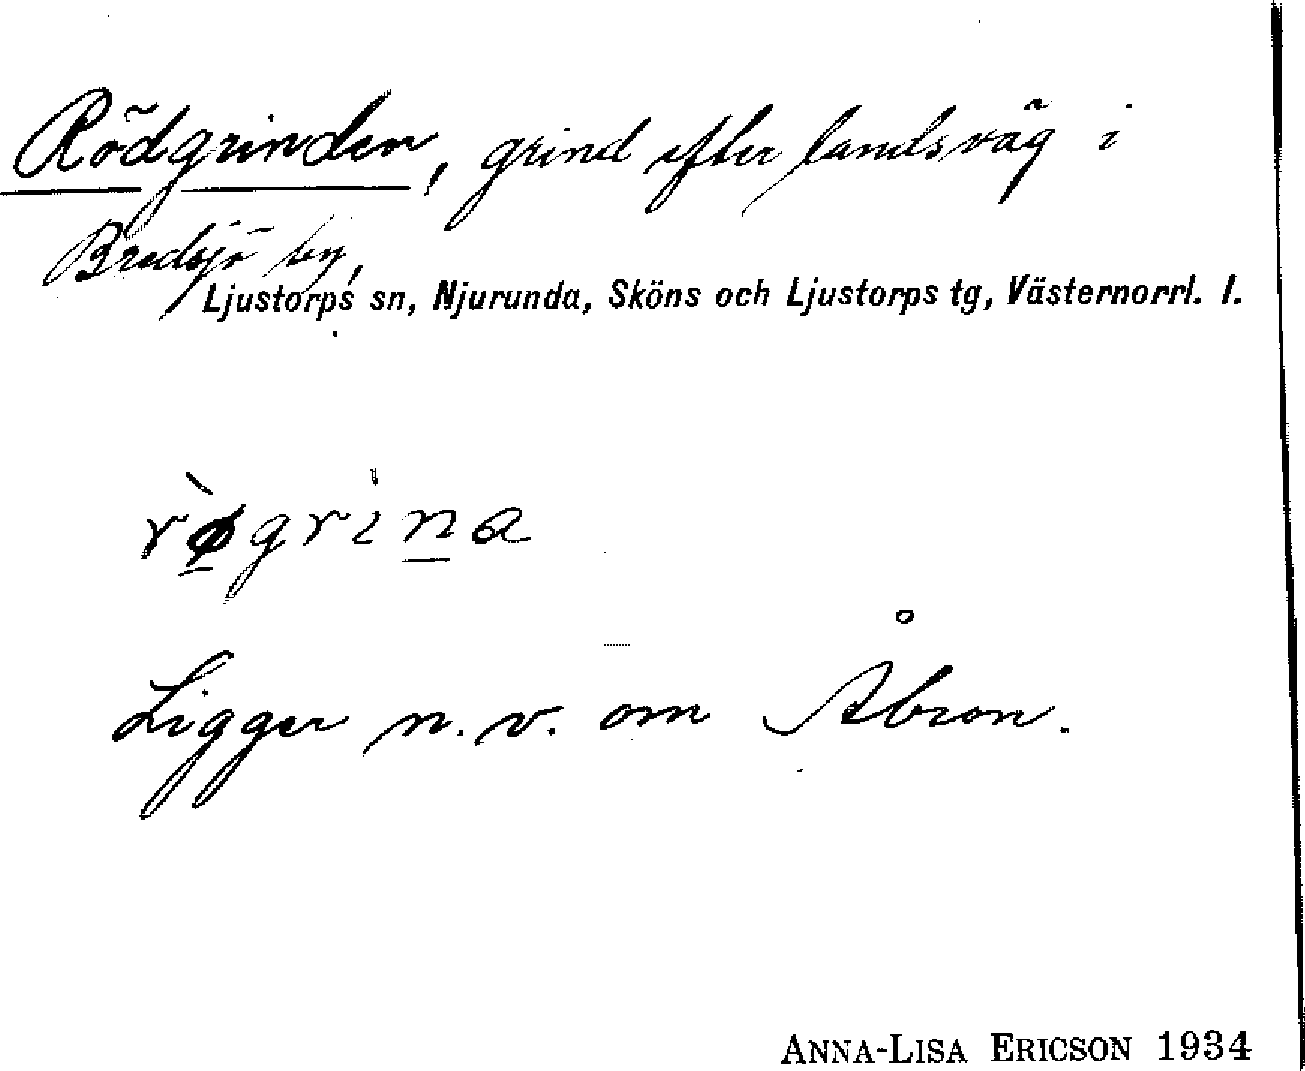 Rödgrinden, grind efter landsväg i
Bredsjö by,
Ljustorps sn, Njurunda, Sköns och Ljustorps tg, Västernorrl. l.
rø̀grìna
Ligger n.v. om Åbron.
ANNA-LISA ERICSON 1934